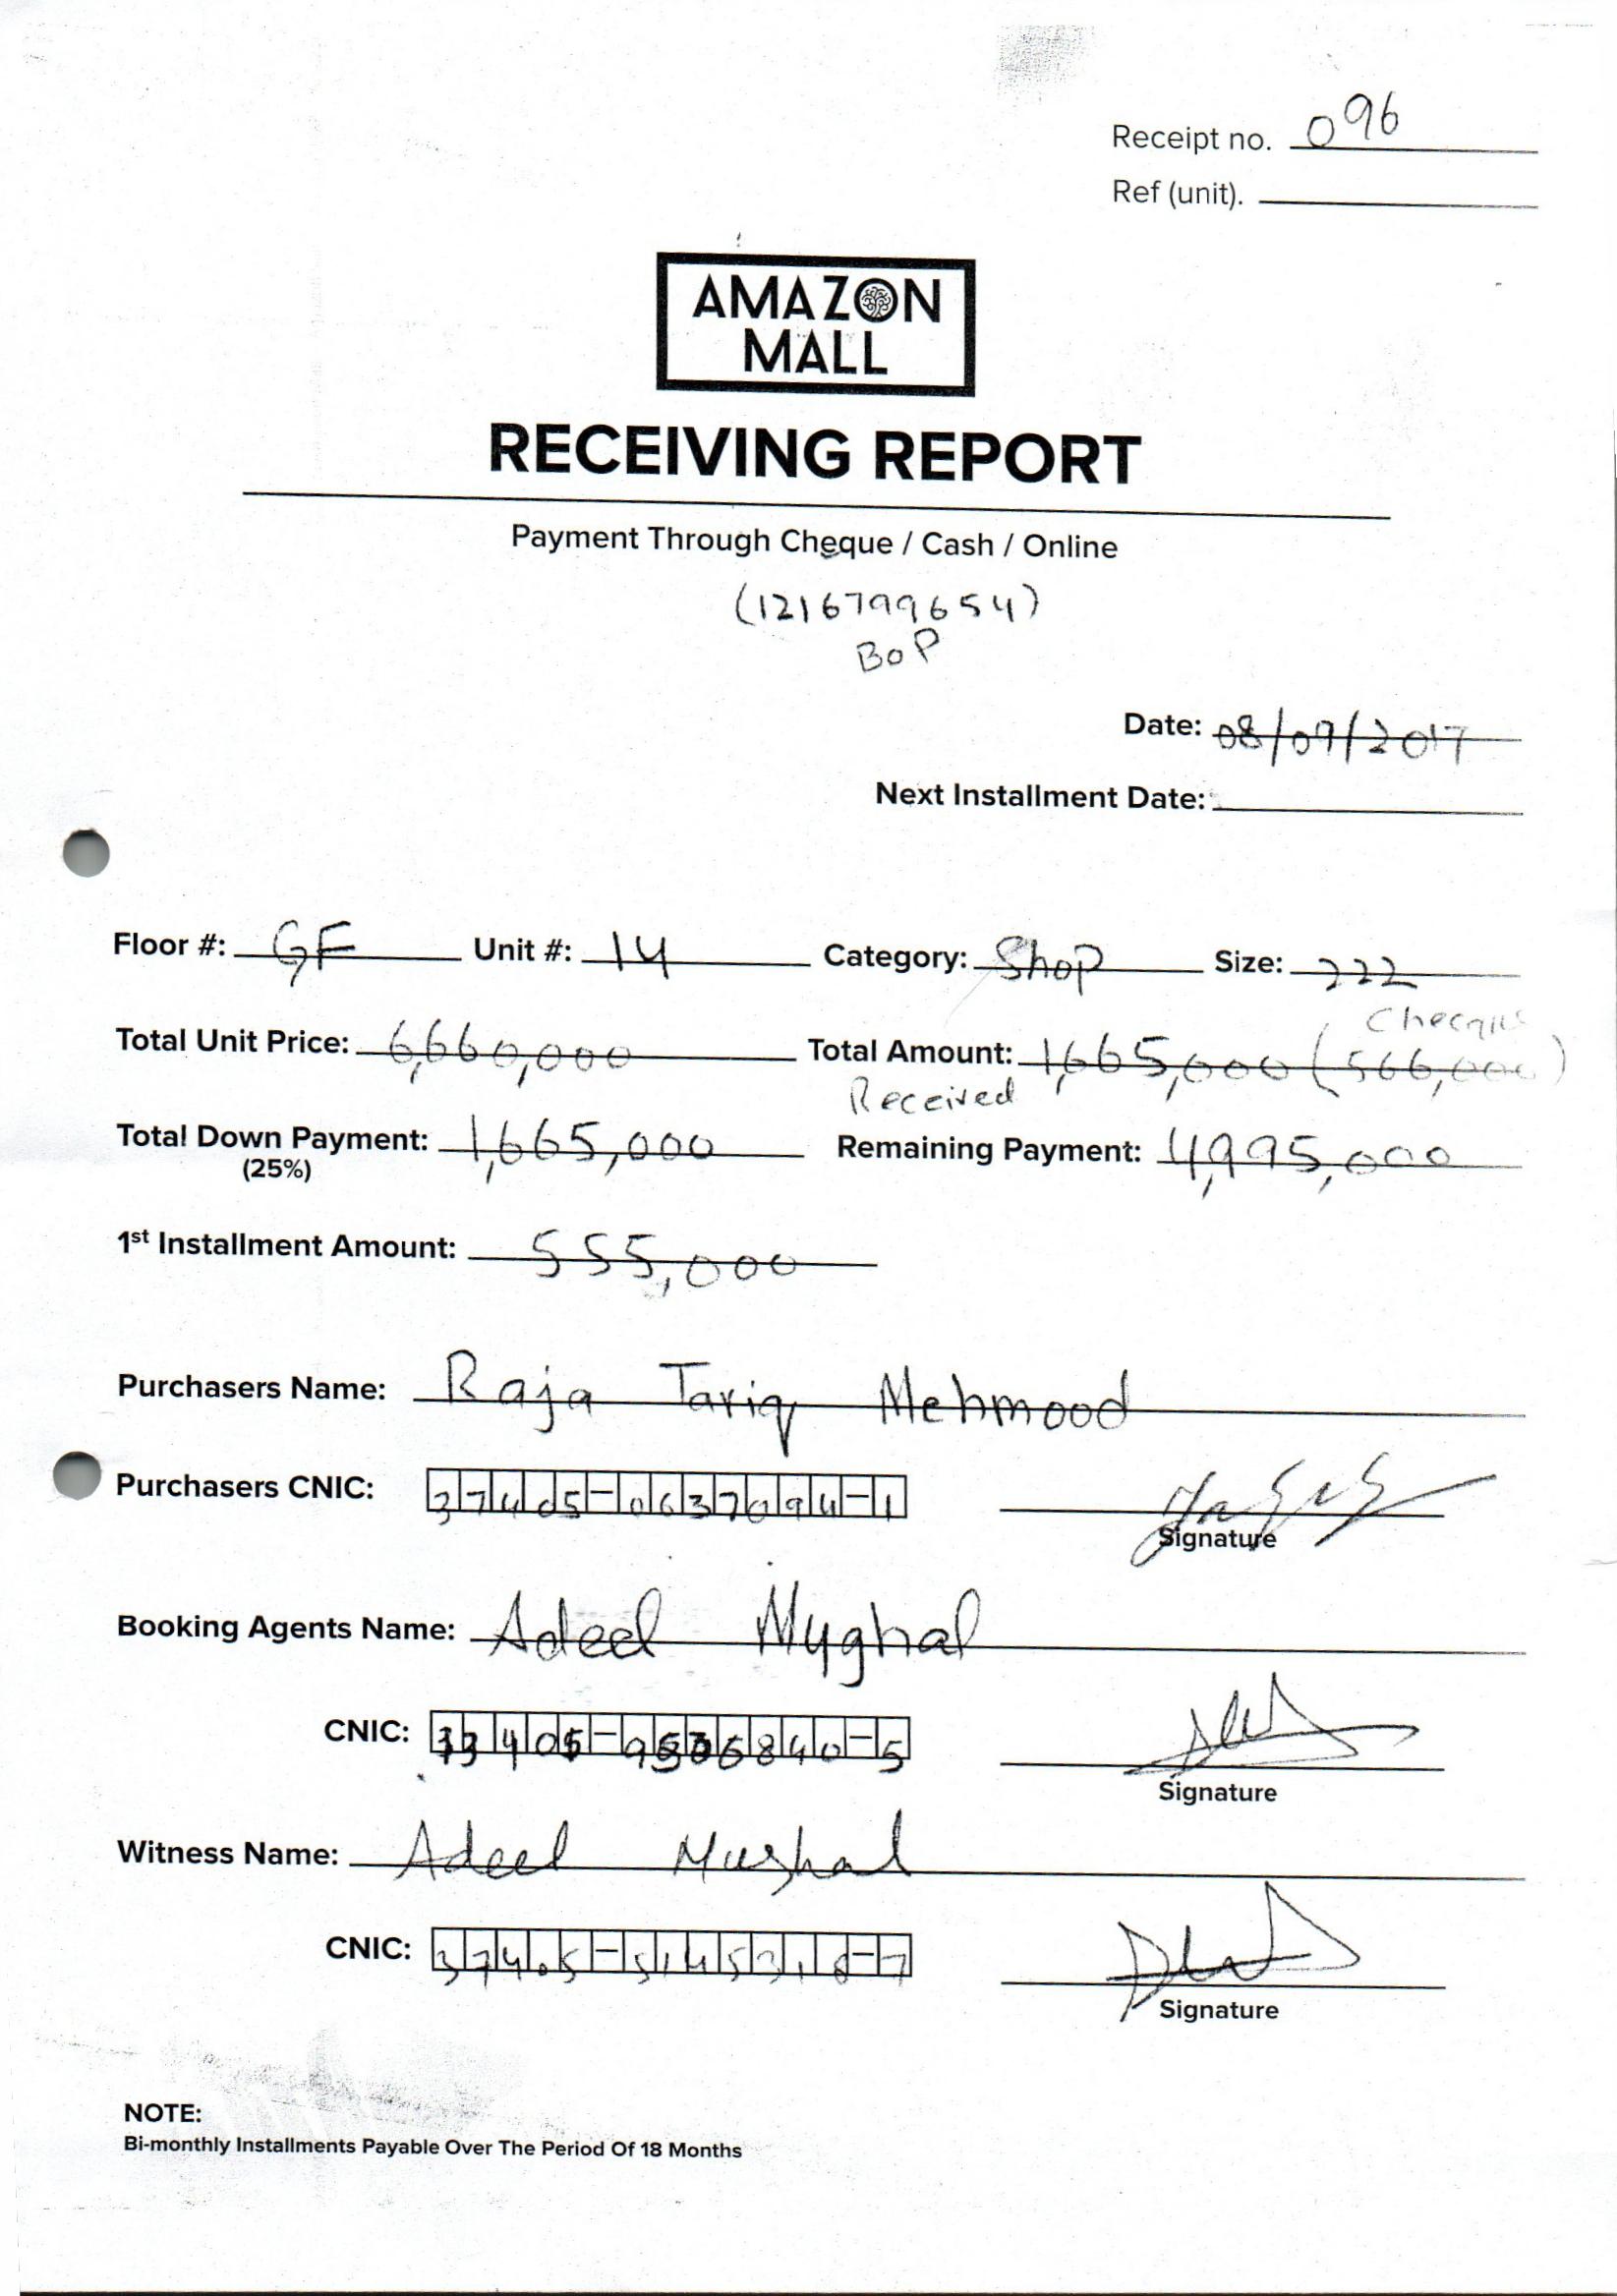 Receipt no. 096
Ref (unit).
AMAZON
MALL
RECEIVING REPORT
Payment Through Cheque / Cash / Online
(1216799654)
BOP
Date: 08/09/2017
Next Installment Date:
Floor #: GF Unit #: 14 Category: Shop Size: 222
Total Unit Price: 6,660,000 Total Amount: 1,665,000 (566,000)
Received
Total Down Payment: 1,665,000 Remaining Payment: 4,995,000
(25%)
1st Installment Amount: 555,000
Purchasers Name: Raja Tariq Mehmood
Purchasers CNIC: 37405-0637094-1
Signature
Booking Agents Name: Adeel Myghal
CNIC:
Signature
Witness Name: Adeel Mughal
CNIC:
Signature
NOTE:
Bi-monthly Installments Payable Over The Period Of 18 Months